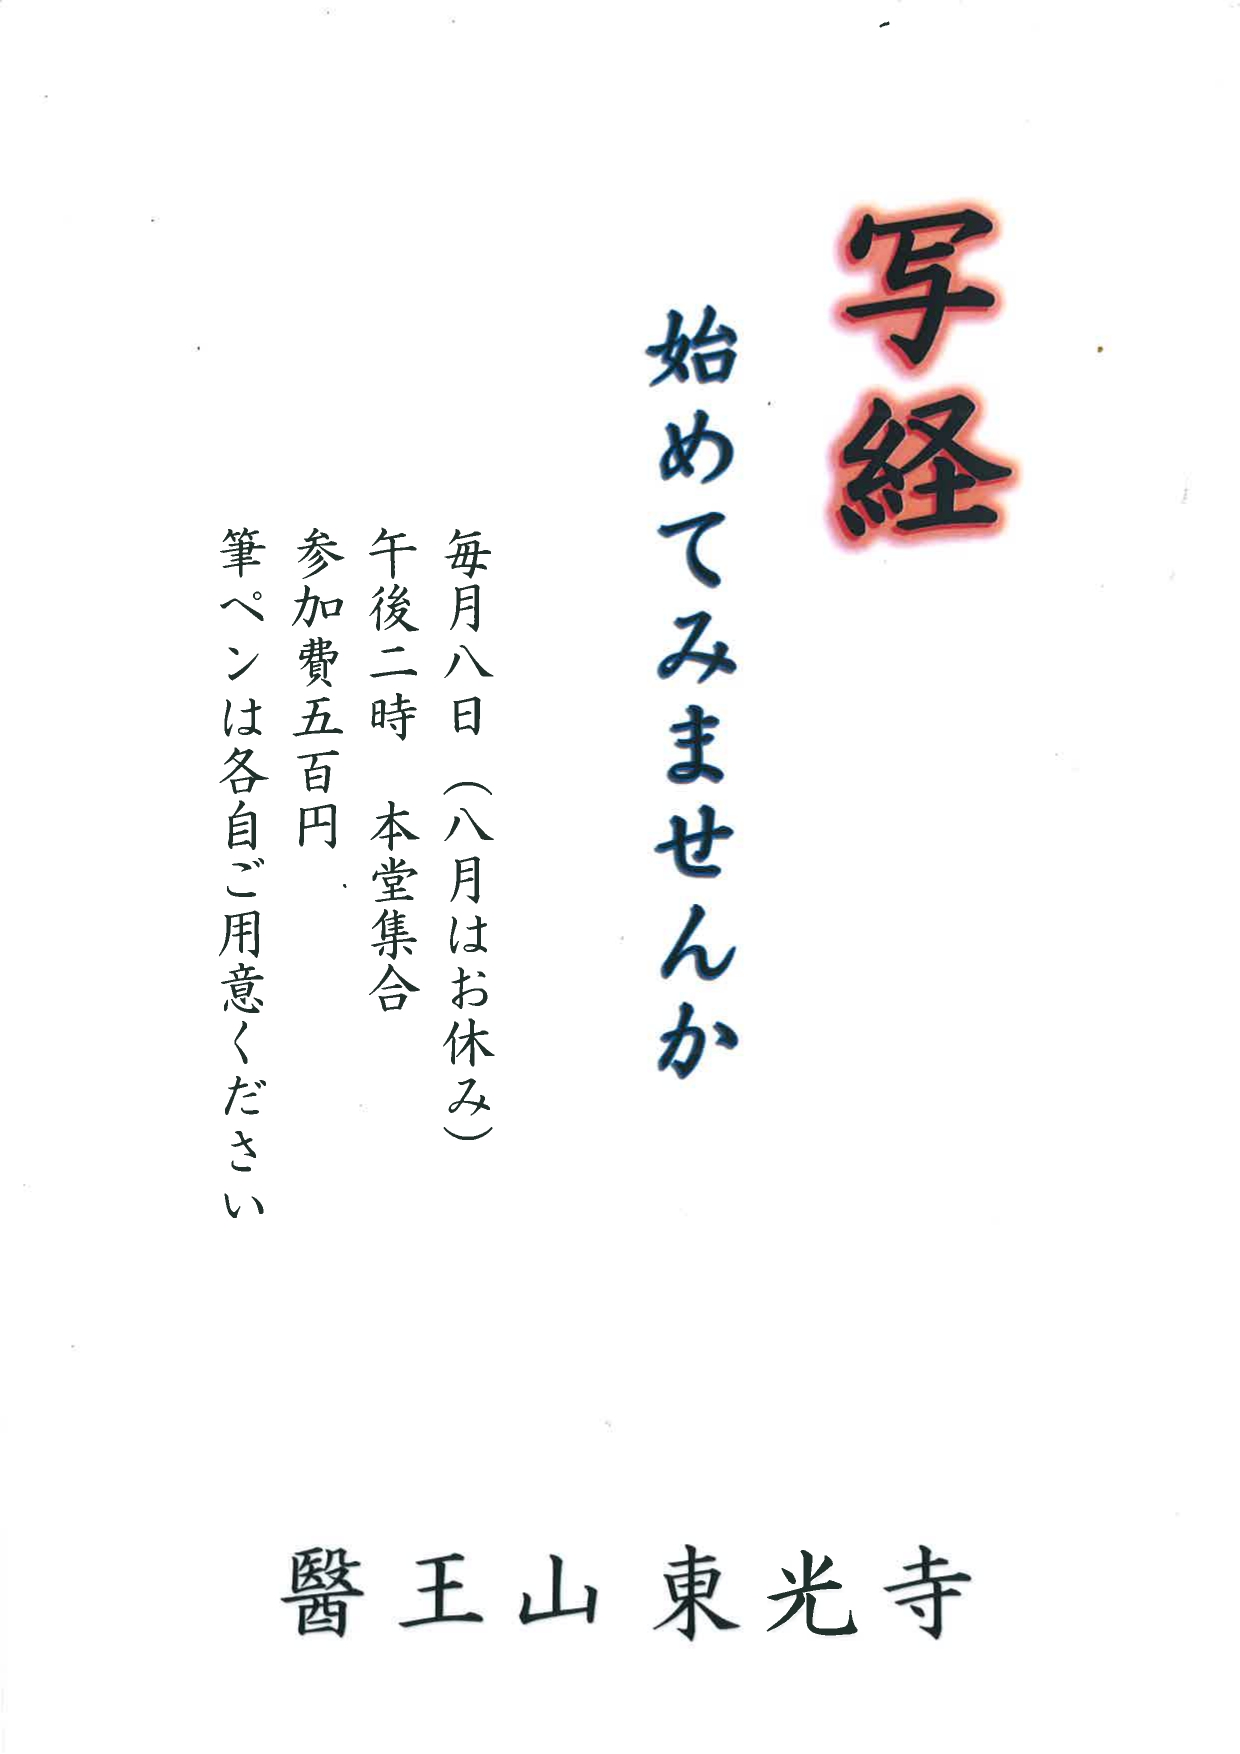 写経
始めてみませんか
毎月八日（八月はお休み）
午後二時　本堂集合
参加費五百円
筆ペンは各自ご用意ください
醫王山東光寺